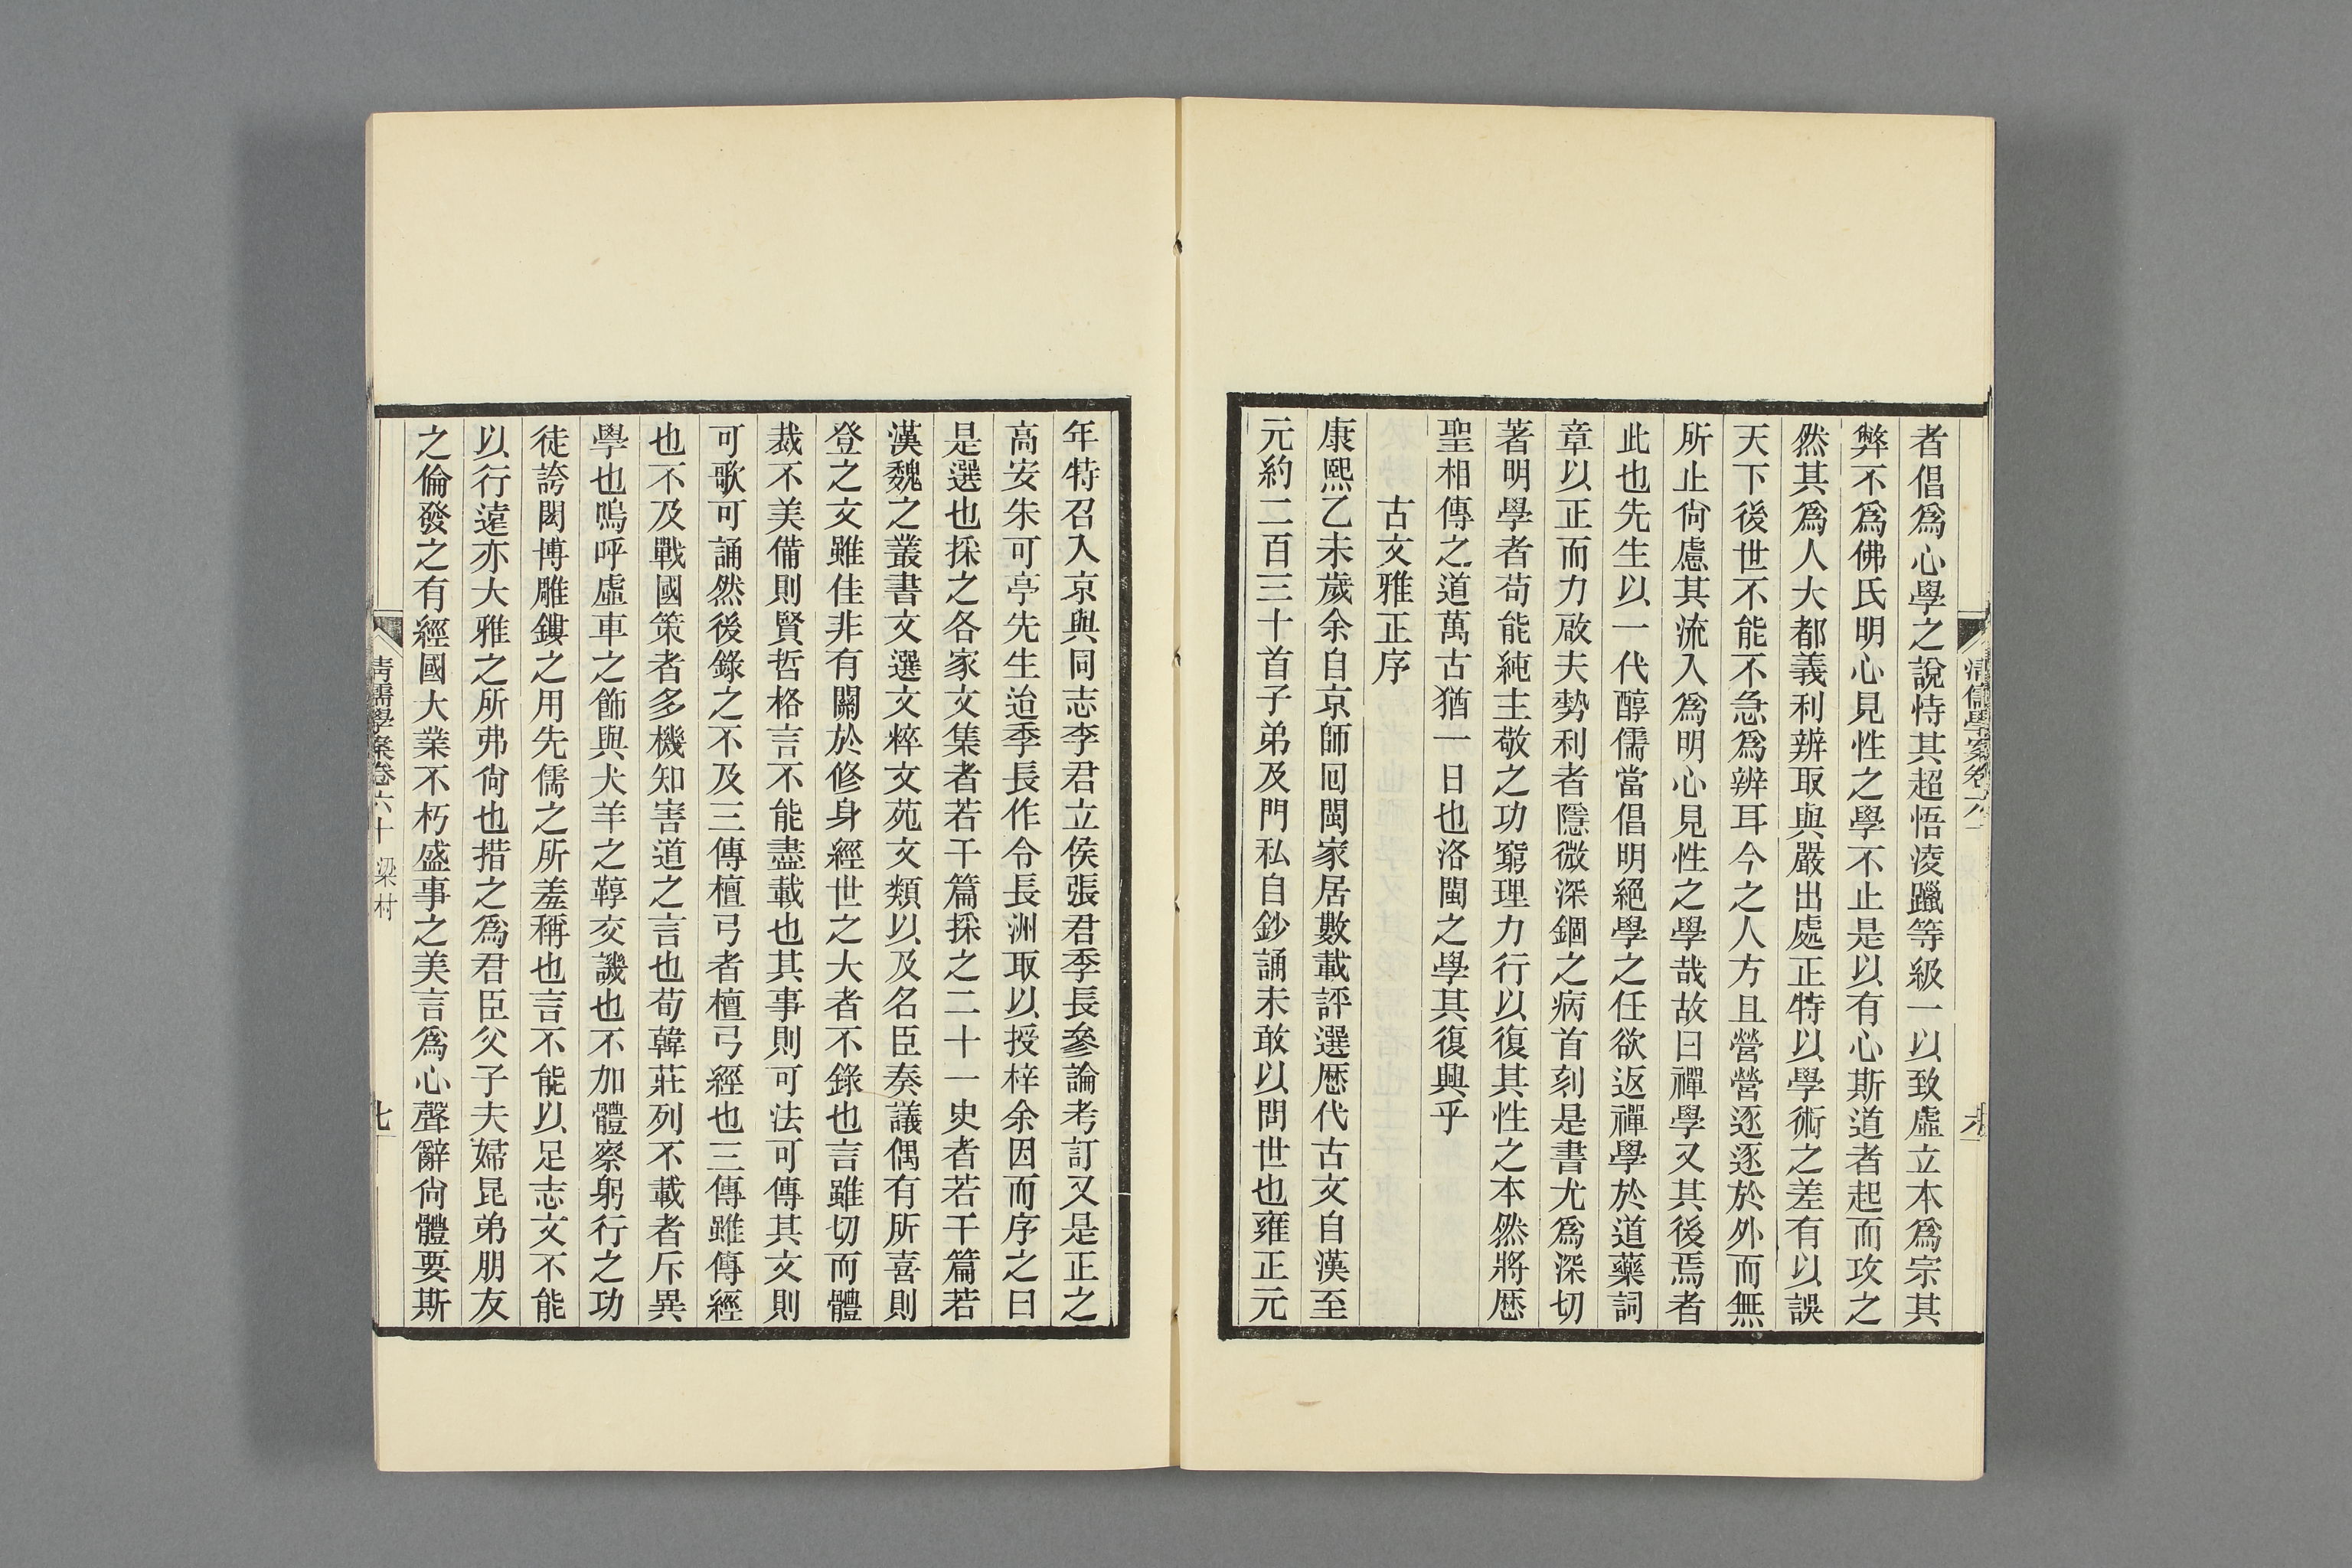 者倡爲心學之說恃其超悟凌躐等級一以致虛立本爲宗其
弊不爲佛氏明心見性之學不止是以有心斯道者起而攻之
然其爲人大都義利辨取與嚴出處正特以學術之差有以誤
天下後世不能不急爲辨耳今之人方且營營逐逐於外而無
所止尙慮其流入爲明心見性之學哉故曰禪學又其後焉者
此也先生以一代醇儒當倡明絕學之任欲返禪學於道藥詞
章以正而力啟夫勢利者隱微深錮之病首刻是書尤爲深切
著明學者苟能純主敬之功窮理力行以復其性之本然將歷
聖相傳之道萬古猶一日也洛閩之學其復興乎
古文雅正序
康熙乙未歲余自京師囘閩家居數載評選歷代古文自漢至
元約二百三十首子弟及門私自鈔誦未敢以問世也雍正元
年特召入京與同志李君立侯張君季長參論考訂又是正之
高安朱可亭先生迨季長作令長洲取以授梓余因而序之曰
是選也採之各家文集者若干篇採之二十一史者若干篇若
漢魏之叢書文選文粹文苑文類以及名臣奏議偶有所喜則
登之文雖佳非有關於修身經世之大者不錄也言雖切而體
裁不美備則賢哲格言不能盡載也其事則可法可傳其文則
可歌可誦然後錄之不及三傳檀弓者檀弓經也三傳雖傳經
也不及戰國策者多機知害道之言也荀韓莊列不載者斥異
學也嗚呼虛車之飾與犬羊之鞟交譏也不加體察躬行之功
徒誇閎博雕鏤之用先儒之所羞稱也言不能以足志文不能
以行遠亦大雅之所弗尙也措之爲君臣父子夫婦昆弟朋友
之倫發之有經國大業不朽盛事之美言爲心聲辭尙體要斯
清儒學案卷六十 梁村
七